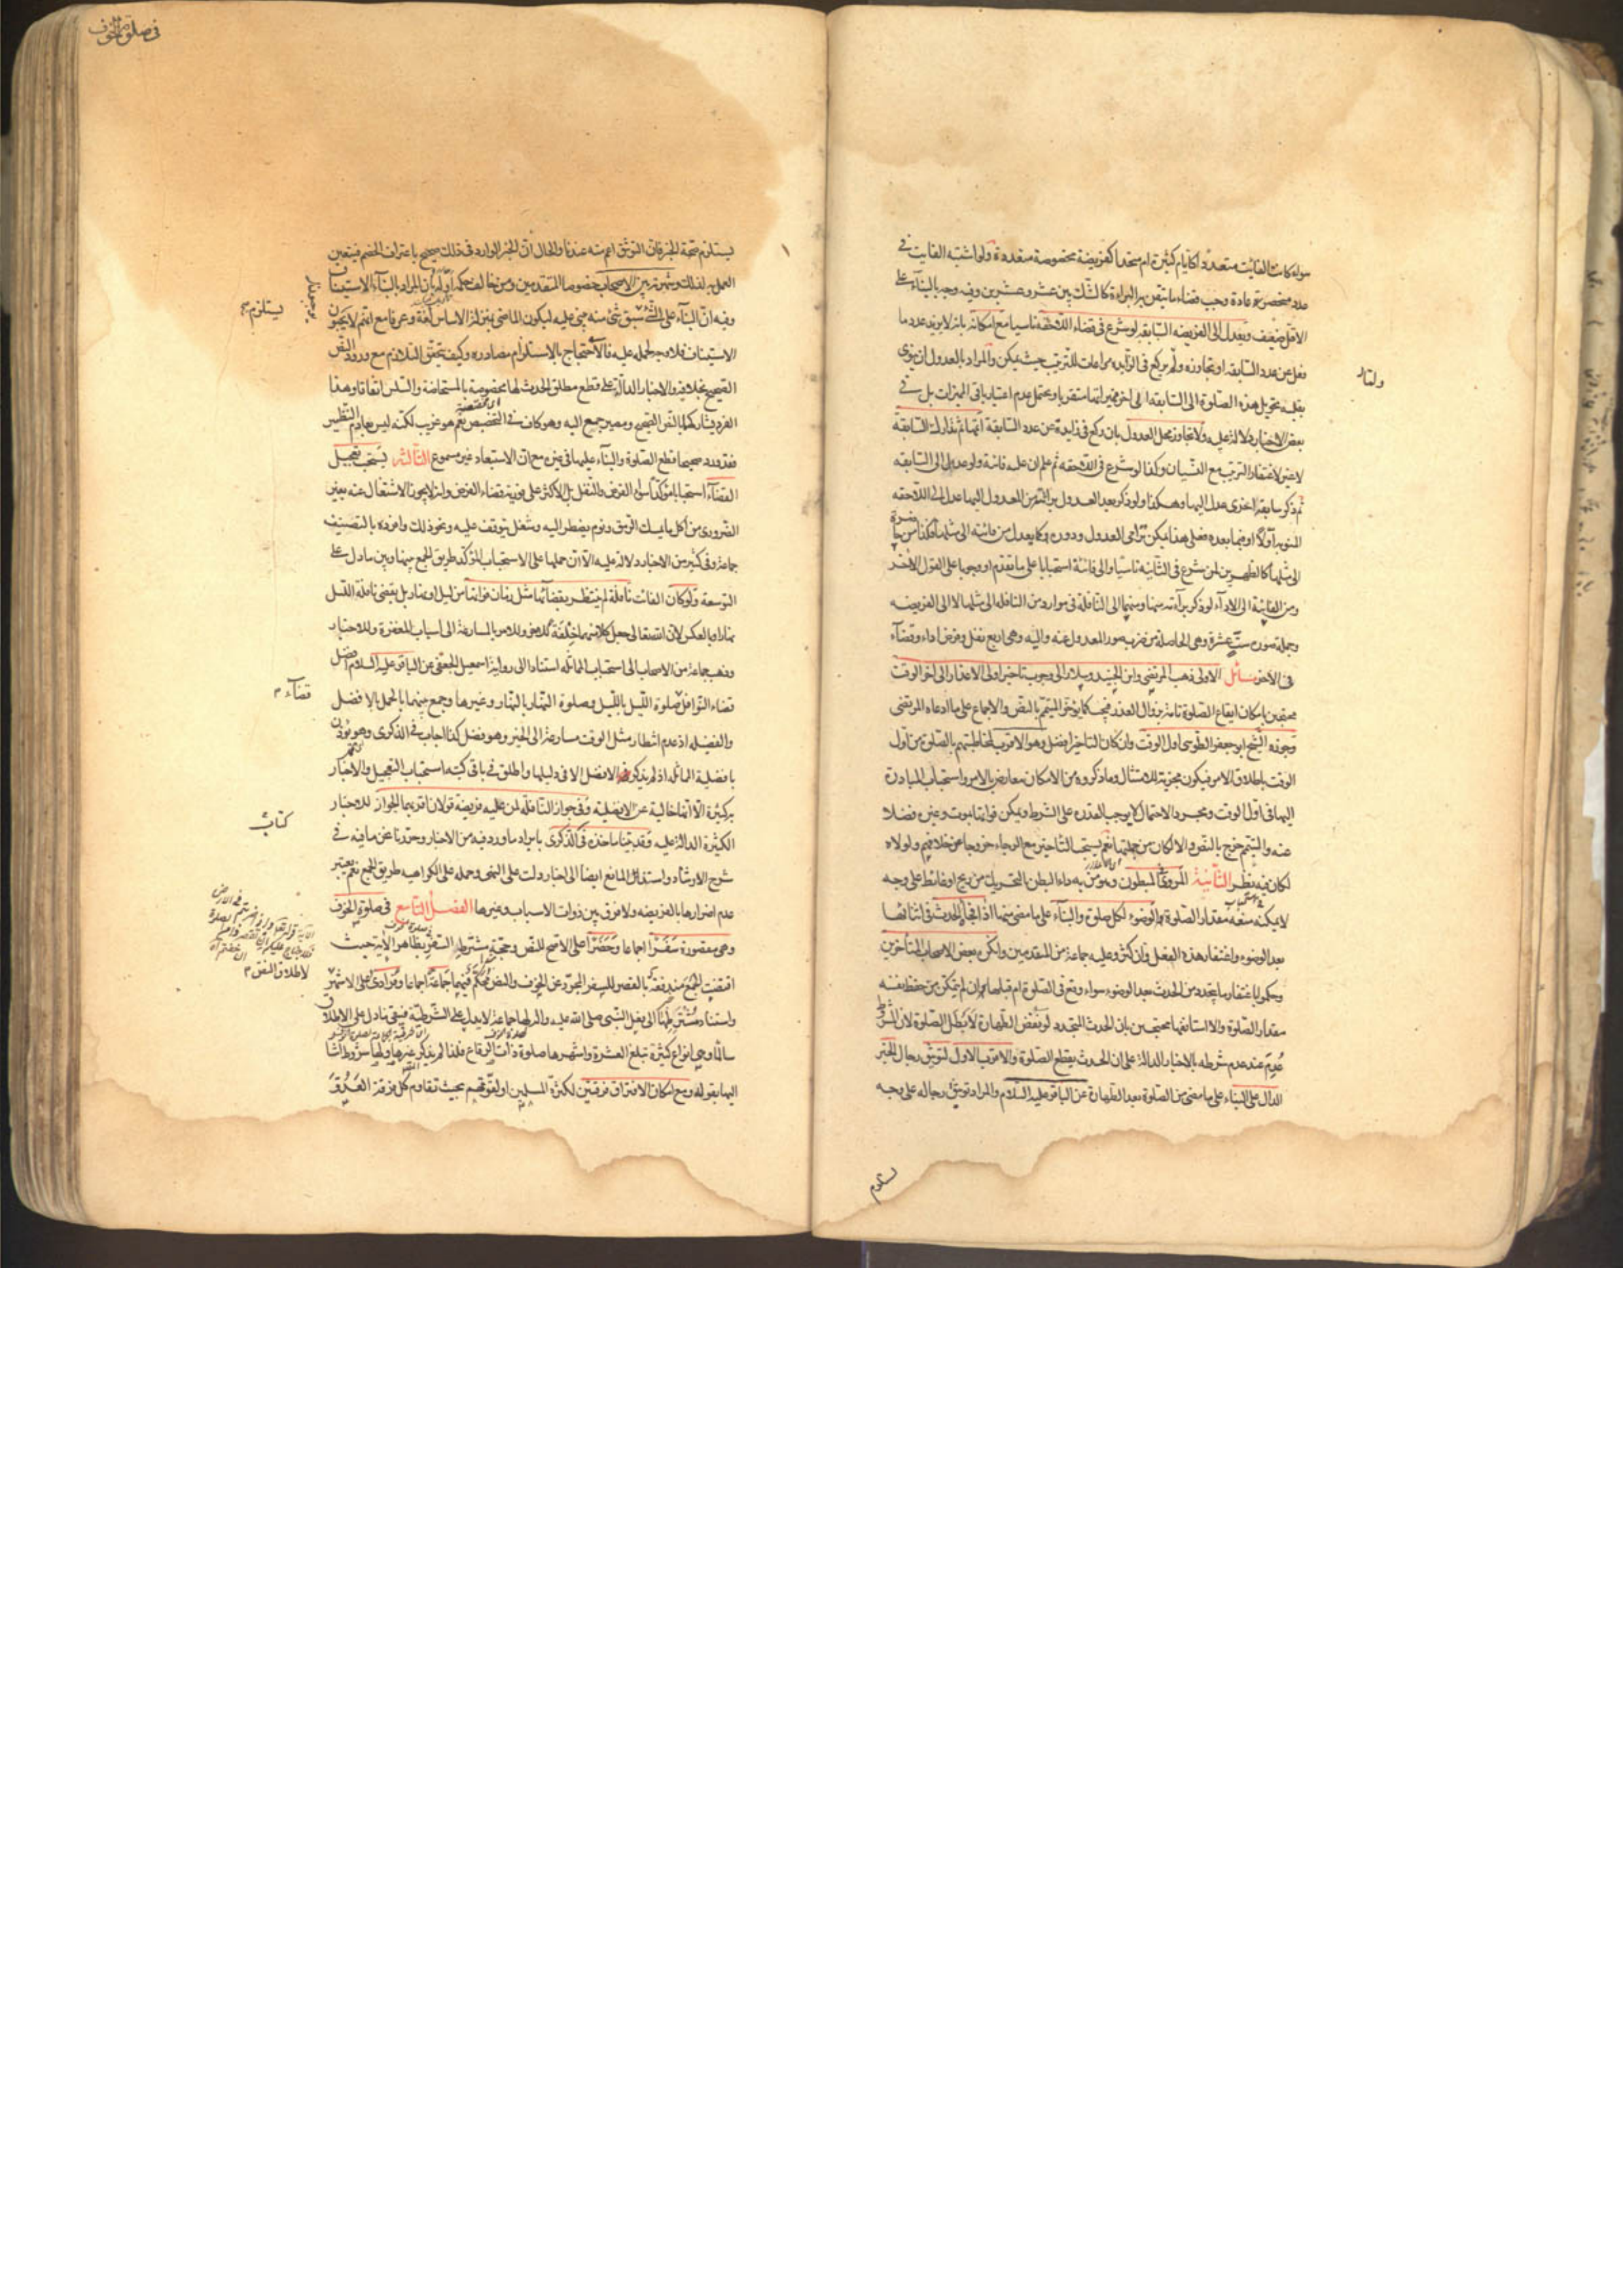 سواء كان الفايت متعددا كايام كثيرة ام متحدا كفريضة مخصوصة متعددة ولو اشتبه الفايت في
عدد منحصر عادة وجب قضاء ما تيقن به البراءة كالشك بين عشر وعشرين وفيه وجه بالبناء على
الاقل ضعيف ويعدل الى الفريضه السابقه لو شرع في قضاء اللاحقه ناسيا مع امكانه بان لا يزيد عدد ما
فعل عن عدد السابقه او تجاوزه ولم يركع في الزايد مراعات للترتيب حيث يمكن والمراد بالعدول ان ينوى
بقلبه تحويل هذه الصلوة الى السابقه الى اخر مميزاتها متقربا ويحتمل عدم اعتبار باقى المميزات بل في
بعض الاخبار دلالة عليه ولو تجاوز محل العدول بان ركع في زايدة عن عدد السابقة اتمها ثم تدارك السابقة
لا غير لاغتفار الترتيب مع النسيان وكذا لو شرع في اللاحقه ثم علم ان عليه فائتة ولو عدل الى السابقه
ثم ذكر سابقة اخرى عدل اليها وهكذا ولو ذكر بعد العدول برائته من المعدول اليها عدل الى اللاحقه
المنويه اولا او فيما بعده فعلى هذا يمكن ترامى العدول ودوره وكما يعدل من فائتة الى مثلها فكذا من حاضرة
الى مثلها كالظهرين لمن شرع في الثانيه ناسيا والى فائتة استحبابا على ما تقدم او وجوبا على القول الاخر
ومن الفايتة الى الاداء لو ذكر براءته منها ومنهما الى النافلة في موارد ومن النافله الى مثلها لا الى الفريضه
وجملة صوره ست عشرة وهي الحاصلة من ضرب صور المعدول عنه واليه وهى اربع نفل وفرض اداء وقضاء
في الاخر مسائل الاولى ذهب المرتضى وابن الجنيد وسلار الى وجوب تاخير اولى الاعذار الى اخر الوقت
محتجين بامكان ايقاع الصلوة تامة بزوال العذر فيجب كما يؤخر المتيمم بالنص والاجماع على ما ادعاه المرتضى
وجوزه الشيخ ابو جعفر الطوسى اول الوقت وان كان التاخير افضل وهو الاقرب لمخاطبتهم بالصلوة من اول
الوقت باطلاق الامر فيكون مجزية للامتثال وما ذكروه من الامكان معارض بالامر واستحباب المبادرة
اليها في اول الوقت ومجرد الاحتمال لا يوجب القدره على الشرط ويمكن فواتها بموت وغيره فضلا
عنه والتيمم خرج بالنص والا لكان من جملتها نعم يستحب التاخير مع الرجاء خروجا عن خلافهم ولولاه
لكان فيه نظر الثانية المروى في المبطون وهو من به داء البطن بالتحريك من ريح او غائط على وجه
لا يمكنه منعه مقدار الصلوة الوضوء لكل صلوة والبناء على ما مضى منها اذا فجأه الحدث في اثنائها
بعد الوضوء واغتفار هذا الفعل وان كثر وعليه جماعة من المتقدمين وانكره بعض الاصحاب المتاخرين
وحكموا باغتفار ما يتجدد من الحدث بعد الوضوء سواء وقع في الصلوة ام قبلها ان لم يتمكن من حفظ نفسه
مقدار الصلوة والا استانفها محتجين بان الحدث المتجدد لو نقض الطهارة لا يبطل الصلوة لان المشروط
عدم عند عدم شرطه بالاخبار الدالة على ان الحدث يقطع الصلوة والاقرب الاول لتوثيق رجال الخبر
الدال على البناء على ما مضى من الصلوة بعد الطهارة عن الباقر عليه السلام والمراد توثيق رجاله على وجه
يستلزم
في صلوة الخوف
يستلزم صحة الخبر فان التوثيق اعم منه عندنا والحال ان الخبر الوارد في ذلك صحيح باعتراف الخصم فيتعين
العمل به لذلك وشهرته بين الاصحاب خصوصا المتقدمين ومن خالف حكمه اوله بان المراد بالبناء الاستيناف
وفيه ان البناء على الشئ سبق شئ منه يبنى عليه ليكون الماضى بمنزلة الاساس لغة وعرفا مع انهم لا يجبون
الاستيناف فلا وجه لحمله عليه فالاحتجاج بالاستلزام مصادرة وكيف يتحقق التلازم مع ورود النص
الصحيح بخلافه والاخبار الدالة على قطع مطلق الحدث لها مخصوصة بالمستحاضة والسلس اتفاقا وهذا
الفرد يشاركهما بالنص الصحيح ومصير جمع اليه وهو كاف في التخصيص نعم هو غريب لكنه ليس بعادم النظير
فقد ورد صحيحا قطع الصلوة والبناء عليها في غيره مع ان الاستبعاد غير مسموع الثالثة يستحب تعجيل
القضاء استحبابا مؤكدا سواء الفرض والنفل بل الاكثر على فورية قضاء الفرض وانه لا يجوز الاشتغال عنه بغير
الضرورى من اكل ما يمسك الرمق ونوم يضطر اليه وشغل يتوقف عليه ونحو ذلك وافرده بالتصنيف
جماعة وفى كثير من الاخبار دلالة عليه الا ان حملها على الاستحباب المؤكد طريق الجمع بينها وبين ما دل على
التوسعة ولو كان الفائت نافلة لم ينتظر بقضائها مثل زمان فواتها من ليل او نهار بل يقضى نافلة الليل
نهارا وبالعكس لان الله تعالى جعل كلا منهما خلفة للاخر وللامر بالمسارعة الى اسباب المغفرة وللاخبار
وذهب جماعة من الاصحاب الى استحباب المماثله استنادا الى رواية اسمعيل الجعفى عن الباقر عليه السلام افضل
قضاء النوافل صلوة الليل بالليل وصلوة النهار بالنهار وغيرها وجمع بينهما بالحمل بالافضل
والفضيله اذ عدم انتظار مثل الوقت مسارعة الى الخير وهو فضل كذا اجاب في الذكرى وهو يؤذن
بافضلية المماثله اذ لم يذكر الافضل الا في دليلها واطلق في باقى كتبه استحباب التعجيل والاخبار
به كثيرة الا انها خالية عن الافضليه وفي جواز النافلة لمن عليه فريضة قولان اقربهما الجواز للاخبار
الكثيرة الدالة عليه وقد بينا ماخذه في الذكرى بايراد ما ورد فيه من الاخبار وحررنا نحن ما فيه في
شرح الارشاد واستدلال المانع ايضا الى اخبار دلت على النهى وحمله على الكراهيه طريق الجمع نعم يعتبر
عدم اضرارها بالفريضه ولا فرق بين ذوات الاسباب وغيرها الفصل التاسع في صلوة الخوف
وهى مقصورة سفرا اجماعا وحضرا على الاصح للنص وحجة مشترط السفر بظاهر الاية حيث
اقتضت الجمع مندفعة بالقصر للسفر المجرد عن الخوف والنص محكم فيهما جماعة اجماعا وفرادى على الاشهر
واستناد مشترطها الى فعل النبى صلى الله عليه واله لها جماعة لا يدل على الشرطية فيبقى ما دل على الاطلاق
سالما وهى انواع كثيرة تبلغ العشرة واشهرها صلوة ذات الرقاع فلذا لم يذكر غيرها ولها شروط اشار
اليها بقوله ومع امكان الافتراق فرقتين لكثرة المسلمين او لقوتهم بحيث تقاوم كل فرقة العدو
يستلزم
قضاء
كتاب
لاطلاق النص